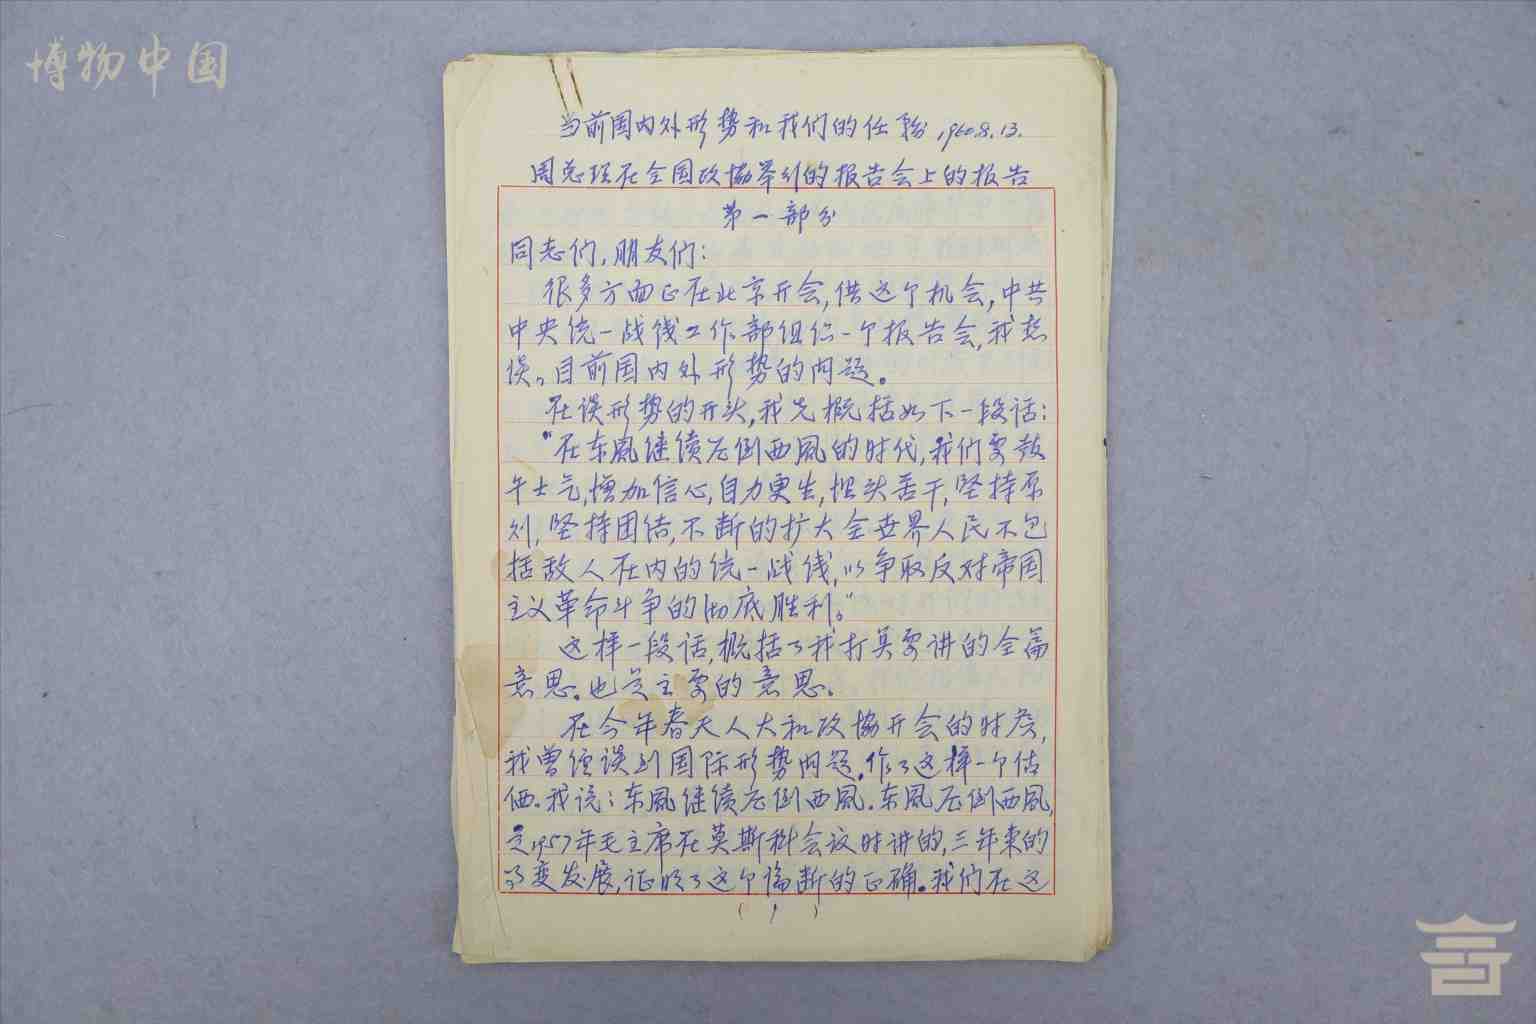 博物中国
当前国内外形势和我们的任务 1960.8.13.
周总理在全国政协举行的报告会上的报告
第一部分
同志们,朋友们:
很多方面正在北京开会,借这个机会,中共
中央统一战线工作部组织一个报告会,我想
谈。目前国内外形势的问题。
在谈形势的开头,我先概括如下一段话:
“在东風继续压倒西風的时代,我们要鼓
午士气,增加信心,自力更生,埋头苦干,坚持原
则,坚持团结,不断的扩大全世界人民不包
括敌人在内的统一战线,以争取反对帝国
主义革命斗争的彻底胜利。”
这样一段话,概括了我打算要讲的全篇
意思。也是主要的意思。
在今年春天人大和政協开会的时候,
我曾经谈到国际形势问题。作了这样一个估
価。我说:东風继续压倒西風。东風压倒西風,
是1957年毛主席在莫斯科会议时讲的,三年来的
事变发展,证明了这个論断的正确。我们在这
(1)